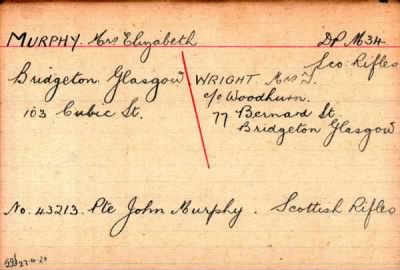 MURPHY. Mrs Elizabeth DP M34
Sco: Rifles
Bridgeton Glasgow
103 Cubic St.
WRIGHT Mrs J.
c/o Woodburn.
77 Bernard St.
Bridgeton Glasgow
No. 43213. Pte John Murphy. Scottish Rifles